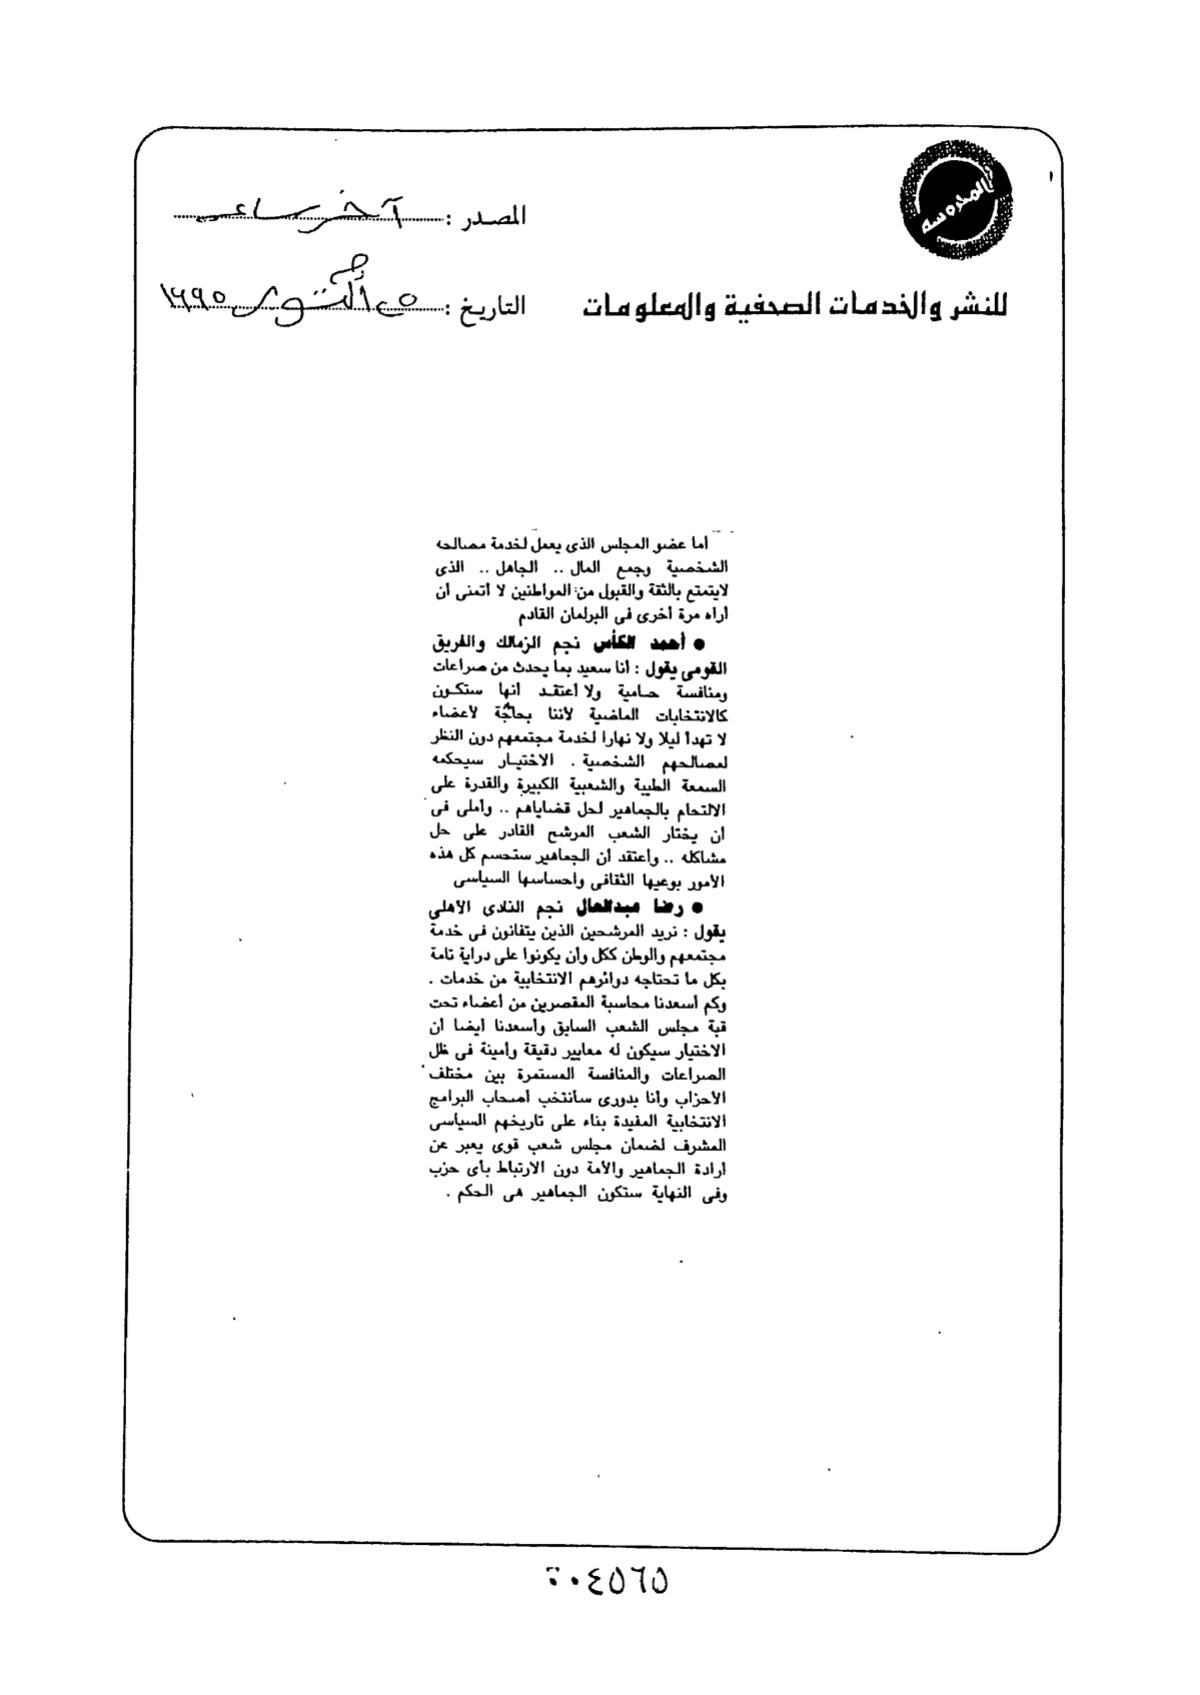 المحروسة
المصدر : آخر ساعة
للنشر والخدمات الصحفية والمعلومات
التاريخ : ٢٥ أكتوبر ١٩٩٥
أما عضو المجلس الذى يعمل لخدمة مصالحه
الشخصية وجمع المال .. الجاهل .. الذى
لايتمتع بالثقة والقبول من المواطنين لا أتمنى أن
أراه مرة أخرى فى البرلمان القادم
● أحمد الكأس نجم الزمالك والفريق
القومى يقول : أنا سعيد بما يحدث من صراعات
ومنافسة حامية ولا أعتقد أنها ستكون
كالانتخابات الماضية لأننا بحاجة لأعضاء
لا تهدأ ليلا ولا نهارا لخدمة مجتمعهم دون النظر
لمصالحهم الشخصية . الاختيار سيحكمه
السمعة الطيبة والشعبية الكبيرة والقدرة على
الالتحام بالجماهير لحل قضاياهم .. وأملى فى
أن يختار الشعب المرشح القادر على حل
مشاكله .. وأعتقد أن الجماهير ستحسم كل هذه
الأمور بوعيها الثقافى وإحساسها السياسى
● رضا عبدالعال نجم النادى الأهلى
يقول : نريد المرشحين الذين يتفانون فى خدمة
مجتمعهم والوطن ككل وأن يكونوا على دراية تامة
بكل ما تحتاجه دوائرهم الانتخابية من خدمات .
وكم أسعدنا محاسبة المقصرين من أعضاء تحت
قبة مجلس الشعب السابق وأسعدنا أيضا أن
الاختيار سيكون له معايير دقيقة وأمينة فى ظل
الصراعات والمنافسة المستمرة بين مختلف
الأحزاب وأنا بدورى سأنتخب أصحاب البرامج
الانتخابية المفيدة بناء على تاريخهم السياسى
المشرف لضمان مجلس شعب قوى يعبر عن
إرادة الجماهير والأمة دون الارتباط بأى حزب
وفى النهاية ستكون الجماهير هى الحكم .
٠٤٥٦٥